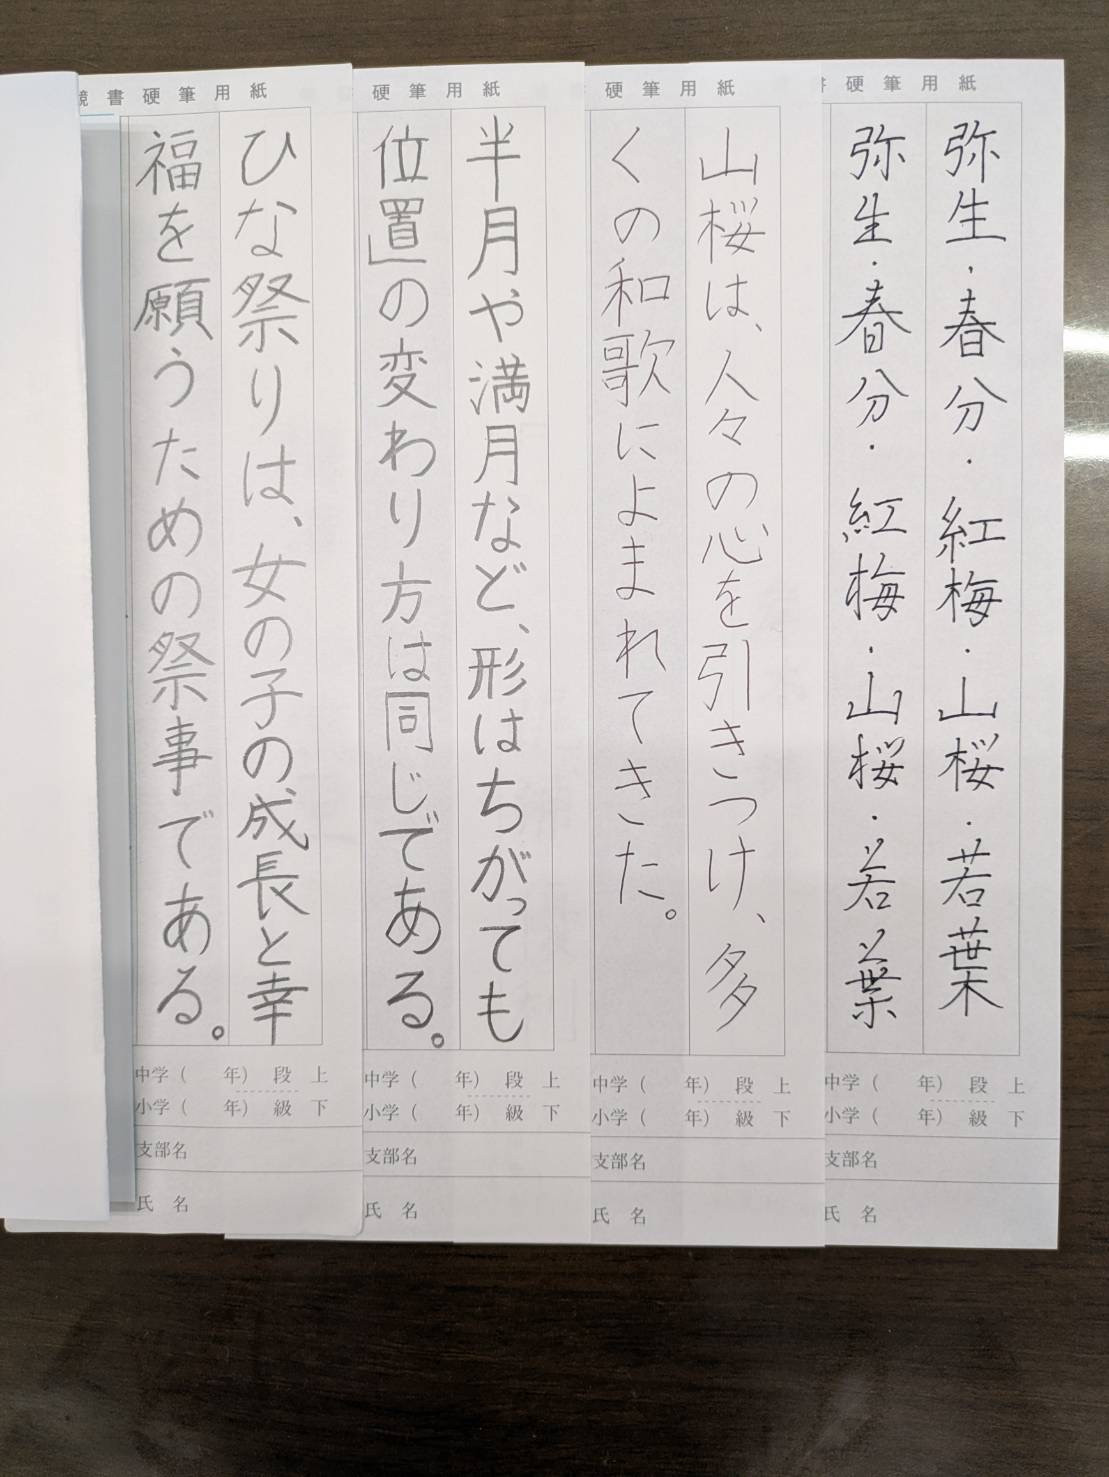 書硬筆用紙
弥生・春分・紅梅・山桜・若葉
弥生・春分・紅梅・山桜・若葉
中学（　年）段 上
小学（　年）級 下
支部名
氏 名
硬筆用紙
山桜は、人々の心を引きつけ、多
くの和歌によまれてきた。
中学（　年）段 上
小学（　年）級 下
支部名
氏 名
硬筆用紙
半月や満月など、形はちがっても
位置」の変わり方は同じである。
中学（　年）段 上
小学（　年）級 下
支部名
氏 名
競書硬筆用紙
ひな祭りは、女の子の成長と幸
福を願うための祭事である。
中学（　年）段 上
小学（　年）級 下
支部名
氏 名